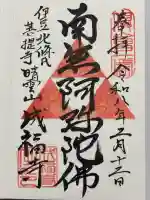 奉拝
令和八年二月十三日
南無阿弥陀佛
伊豆北條氏
菩提寺
晴雲山
成福寺